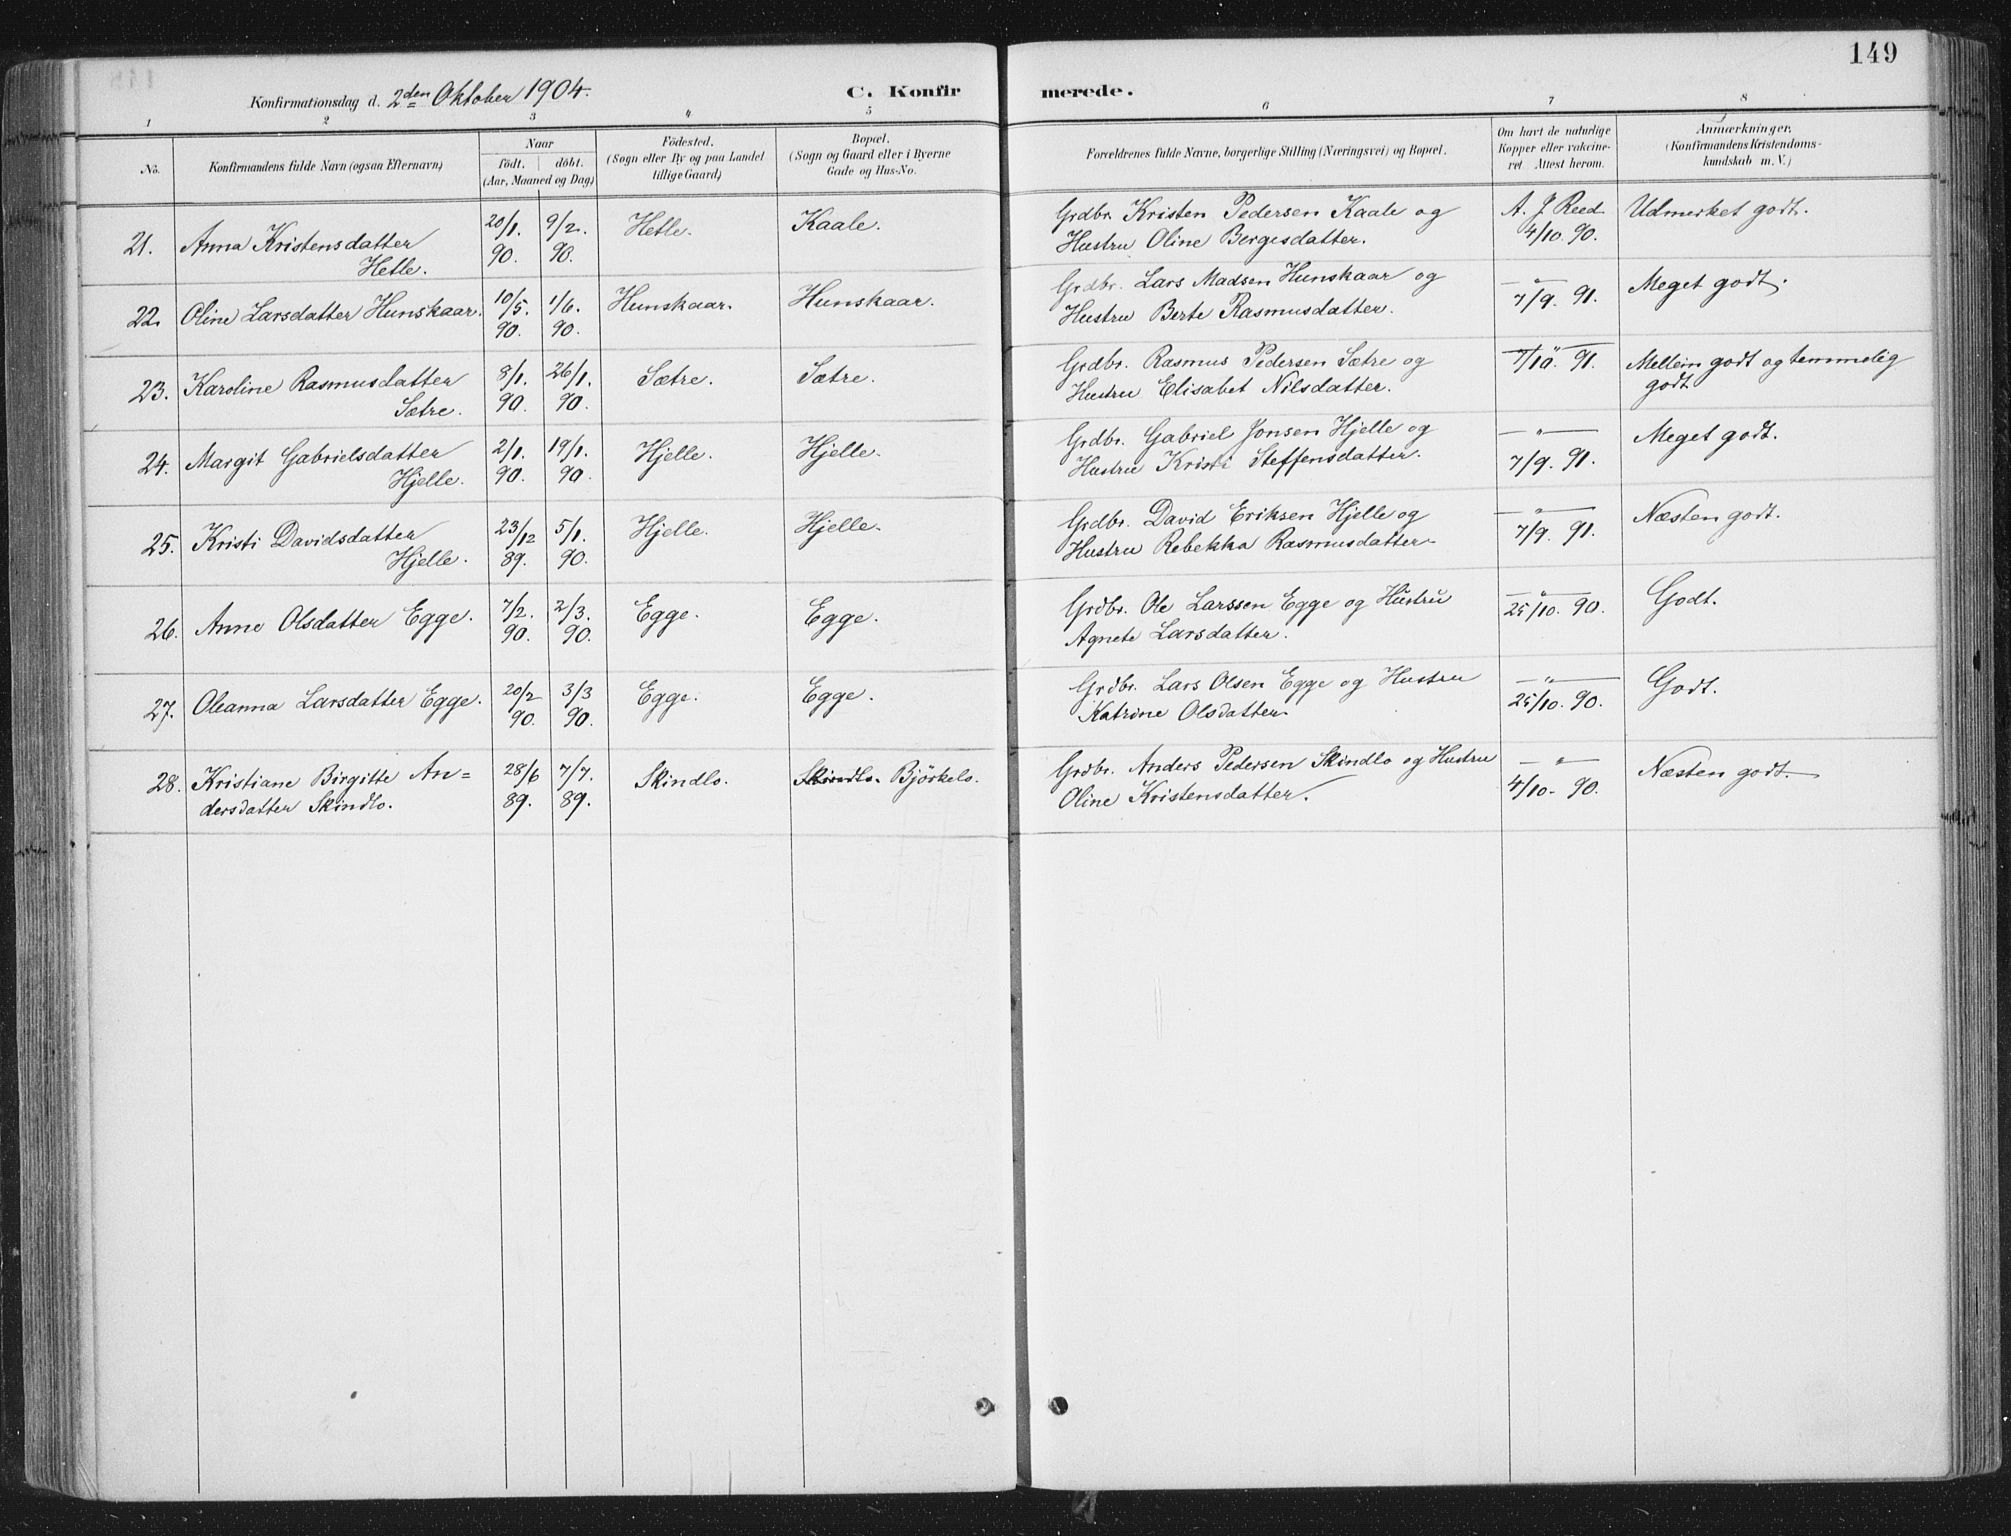 149
Konfirmationsdag d. 2den Oktober 1904.
C. Konfirmerede.
1 2 3 4 5 6 7 8
No.
Konfirmandens fulde Navn (ogsaa Efternavn)
Naar
født. døbt.
(Aar, Maaned og Dag)
Fødested.
(Sogn eller By og paa Landet
tillige Gaard)
Bopæl.
(Sogn og Gaard eller i Byerne
Gade og Hus-No.
Forældrenes fulde Navne, borgerlige Stilling (Næringsvei) og Bopæl.
Om havt de naturlige
Kopper eller vakcine-
ret. Attest herom.
Anmærkninger.
(Konfirmandens Kristendoms-
kundskab m. V.)
21. Anna Kristensdatter 20/1. 9/2. Hetle. Kaale. Grdbr. Kristen Pedersen Kaale og A. J. Reed Udmerket godt.
Hetle. 90. 90. Hustru Oline Bergesdatter. 4/10. 90.
22. Oline Larsdatter Hunskaar. 10/5. 1/6. Hunskaar. Hunskaar. Grdbr. Lars Madsen Hunskaar og — " — Meget godt.
90. 90. Hustru Berte Rasmusdatter. 7/9. 91.
23. Karoline Rasmusdatter 8/1. 26/1. Sætre. Sætre. Grdbr. Rasmus Pedersen Sætre og — " — 7/10. 91. Mellem godt og temmelig
Sætre. 90. 90. Hustru Elisabet Nilsdatter. godt.
24. Margit Gabrielsdatter 2/1. 19/1. Hjelle. Hjelle. Grdbr. Gabriel Jonsen Hjelle og — " — Meget godt.
Hjelle. 90. 90. Hustru Kristi Steffensdatter. 7/9. 91.
25. Kristi Davidsdatter 23/12 5/1. Hjelle. Hjelle. Grdbr. David Eriksen Hjelle og — " — Næsten godt.
Hjelle. 89. 90. Hustru Rebekka Rasmusdatter. 7/9. 91.
26. Anne Olsdatter Egge. 7/2. 2/3. Egge. Egge. Grdbr. Ole Larssen Egge og Hustru — " — Godt.
90. 90. Agnete Larsdatter. 25/10. 90.
27. Oleanna Larsdatter Egge. 20/2 3/3 Egge. Egge. Grdbr. Lars Olsen Egge og Hustru — " — Godt.
90. 90. Katrine Olsdatter. 25/10. 90.
28. Kristiane Birgitte An= 28/6 7/7. Skindlo. Skindlo. Björkelo. Grdbr. Anders Pedersen Skindlo og Hustru — " — Næsten godt.
dersdatter Skindlo. 89. 89. Oline Kristensdatter. 4/10. 90.